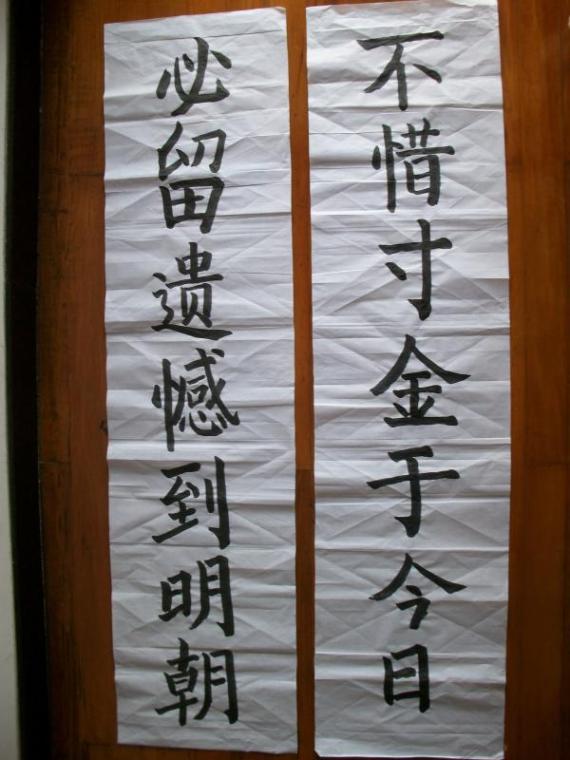 不惜寸金于今日
必留遗憾到明朝